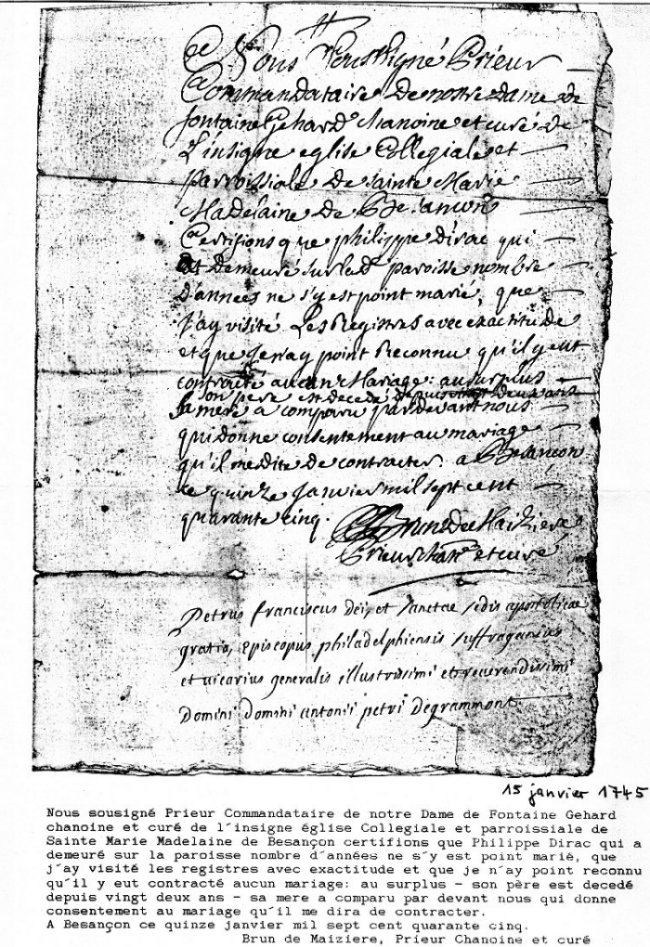 Nous Soussigné Prieur
Commandataire de nostre dame de
fontaine Gehard Chanoine et curé de
L'insigne eglise Collegiale et
parroissiale de sainte Marie
Madelaine de Besançon
Certifions que philippe dirac qui
at demeuré sur lad. paroisse nombre
d'années ne s'y est point marié, que
J'ay visité Les Registres avec exactitude
et que Je n'ay point Reconnu qu'il y eut
contracté aucun Mariage: au surplus
son pere est decedé depuis vingt deux ans
sa mere a comparu par devant nous
qui donne consentement au mariage
qu'il medite de contracter. a Besançon
ce quinze Janvier mil sept cent
quarante cinq.
Brun de Maiziere
Prieur Chan. et curé
Petrus franciscus dei, et sanctae sedis apostolicae
gratia, episcopus philadelphiensis suffraganeus
et vicarius generalis illustrissimi et reverendissimi
Domini Domini antonii petri Degrammont
15 janvier 1745
Nous sousigné Prieur Commandataire de notre Dame de Fontaine Gehard
chanoine et curé de l'insigne église Collegiale et parroissiale de
Sainte Marie Madelaine de Besançon certifions que Philippe Dirac qui a
demeuré sur la paroisse nombre d'années ne s'y est point marié, que
j'ay visité les registres avec exactitude et que je n'ay point reconnu
qu'il y eut contracté aucun mariage: au surplus - son père est decedé
depuis vingt deux ans - sa mere a comparu par devant nous qui donne
consentement au mariage qu'il me dira de contracter.
A Besançon ce quinze janvier mil sept cent quarante cinq.
Brun de Maiziere, Prieur Chanoine et curé